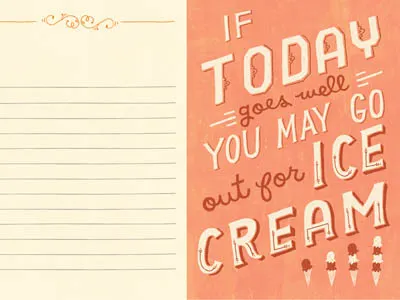 IF
TODAY
goes well
YOU MAY GO
out for ICE
CREAM